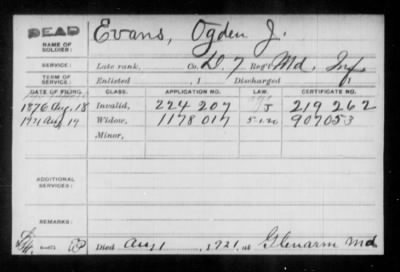 DEAD
NAME OF SOLDIER: Evans, Ogden J.
SERVICE: Late rank, Co. D, 7 Reg't Md. Inf
TERM OF SERVICE: Enlisted , 1 Discharged , 1
DATE OF FILING. CLASS. APPLICATION NO. LAW. CERTIFICATE NO.
1876 Aug. 18 Invalid, 224 207 J 219 262
1921 Aug 19 Widow, 1178 017 5-1-20 907053
Minor,
ADDITIONAL SERVICES:
REMARKS:
Died Aug 1 , 1921, at Glenarm Md